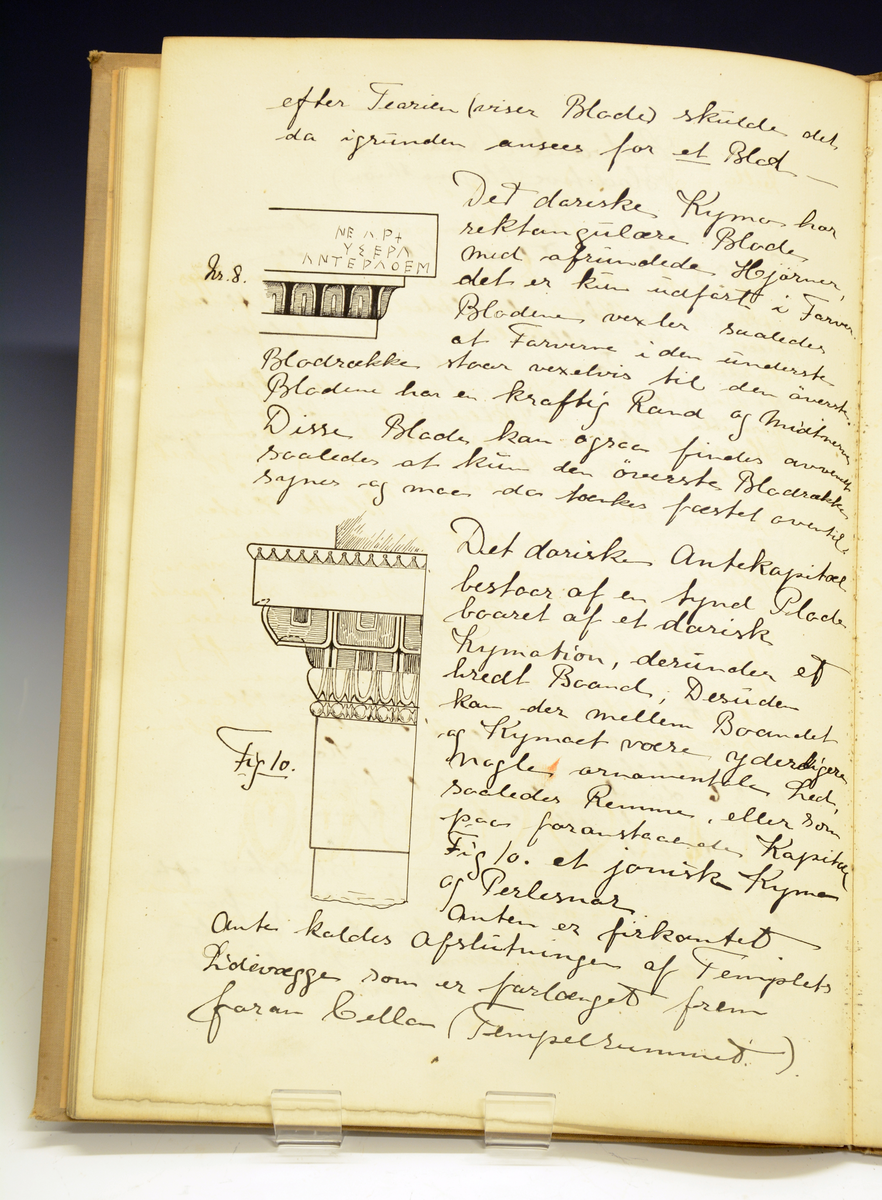 efter Teorien (viser Blade) skulde det
da igrunden ansees for et Blad —
Det doriske Kyma har
rektangulære Blade
med afrundede Hjørner,
det er kun udført i Farver.
Bladene vexler saaledes
at Farverne i den underste
Bladrække staar vexelvis til den överste.
Bladene har en kraftig Rand og Midtnerve
Disse Blade kan ogsaa findes anvendt
saaledes at kun den överste Bladrække
synes og maa da tænkes fæstet oventil.
Nr. 8.
ΝΕΛΡ+
ΥΣΕΡΛ
ΛΝΤΕΡΛΟΕΜ
Det doriske Antekapitæl
bestaar af en tynd Plade
baaret af et dorisk
Kymation, derunder et
bredt Baand, Desuden
kan der mellem Baandet
og Kymaet være yderligere
nogle ornamentale Led,
saaledes Remme, eller som
paa foranstaaende Kapitæl
Fig 10. et jonisk Kyma
og Perlesnor
Anten er firkantet
Fig 10.
Ante kaldes Afslutningen af Templets
Sidevægge som er forlænget frem
foran Cella (Tempelrummet.)